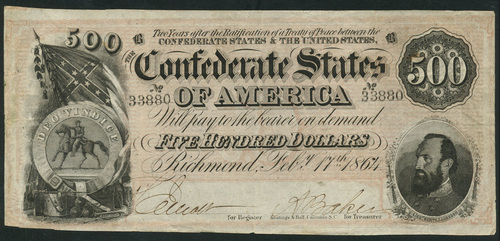 Two Years after the Ratification of a Treaty of Peace between the
CONFEDERATE STATES & THE UNITED STATES,
500 THE Confederate States 500
No 33880 No 33880
OF AMERICA
Will pay to the bearer on demand
FIVE HUNDRED DOLLARS
Richmond, Feby 17th 1864
DEO VINDICE
for Register Keatinge & Ball, Columbia, S.C. for Treasurer